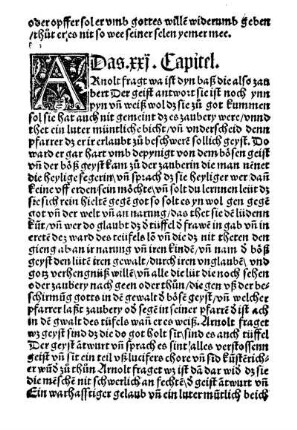 oder opffer sol er vmb gottes willē widerumb geben
/thůt er es nit so wee seiner selen yemer mee.
Das .xxj. Capitel.
ARnolt fragt wa ist dyn baß die also zau
bert Der geist antwort sie ist noch ynn
pyn vñ weiß wol dz sie zů got kummen
sol sie hat auch nit gemeint dz es zaubery were/vnnd
thet ein luter müntliche bicht/vñ vnderscheid denn
pfarrer dz er ir erlaubt zu beschwerē sollich geyst. Do
ward er gar hart vmb depynigt von dem bösen geist
vñ der böß geyst kam zů der zauberin die man nenet
die heylige segerin/vñ sprach dz sie heyliger wer dañ
keine vff erden/sein möchte/vñ solt du lernen leüt dz
sie sich rein hieltē gegē got so solt es yn wol gen gegē
got vñ der welt vñ an narung/das thet sie dē liidenn
küt/vñ wer do glaubt dz d tüffel dz frawē in gab vñ in
eretē dz ward des teüfels lō vñ die dz nit theten denn
gieng aban ir narung vñ iren kindē/vñ nam d böß
geyst den liitē iren gewalt/durch iren vnglaubē/vnd
gotz verhengniß willē/vñ alle die liit die noch sehen
oder zaubery nach geen oder thůn/die gen vß der be-
schirmūg gotts in dē gewalt d bösē geyst/vñ welcher
pfarrer laßt zaubery od segē in seiner pfarr dē ist ach
in dē gwalt des tüfels wan er es weiß. Arnolt fraget
wz geyst sind dz dz do got holt sit/sind es auch tüffel
Der geyst ātwurt vñ sprach es sint/alles verstossenn
geist vñ sit ein teil vß lucifers chore vñ sū küsterich-
er wūd zů thůn Arnolt fraget wz ist dā dar wid dz sie
die mēschē nit schwerlich an fechtē/d geist ātwurt vñ
Ein warhafftiger gelaub vñ ein luter mütlich beicht